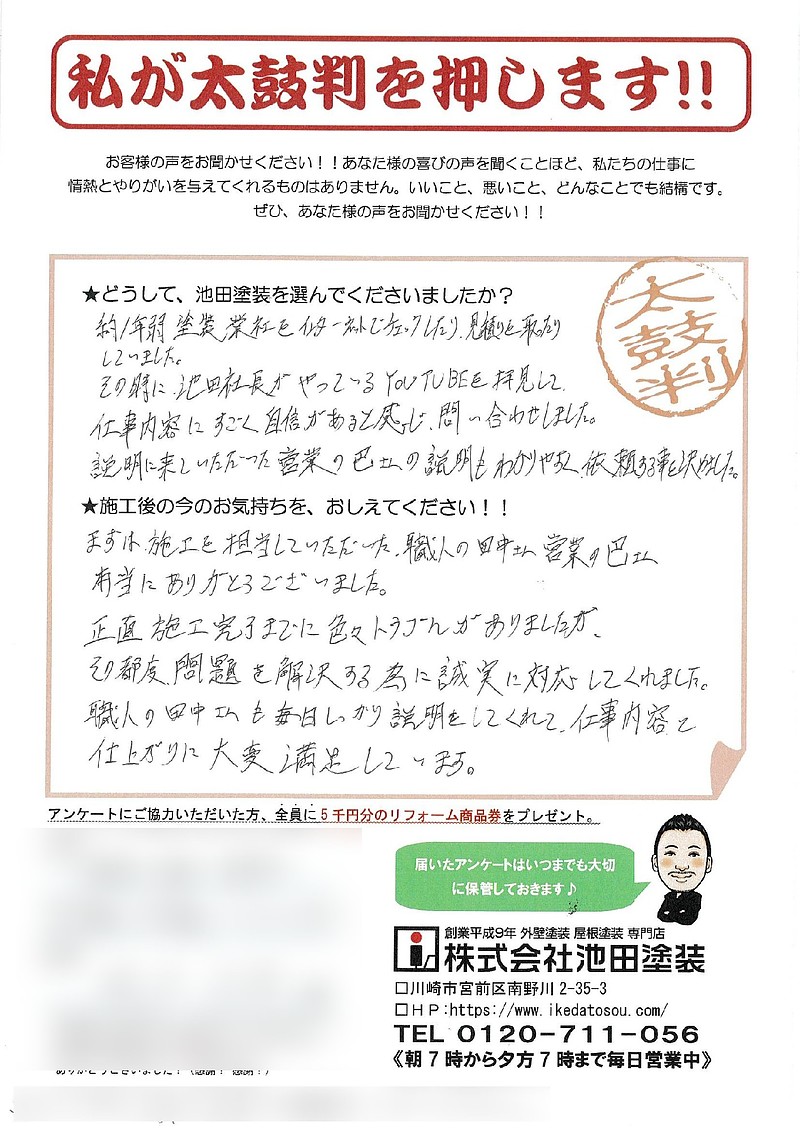 私が太鼓判を押します!!
お客様の声をお聞かせください！！あなた様の喜びの声を聞くことほど、私たちの仕事に
情熱とやりがいを与えてくれるものはありません。いいこと、悪いこと、どんなことでも結構です。
ぜひ、あなた様の声をお聞かせください！！
太鼓判
★どうして、池田塗装を選んでくださいましたか？
約1年弱 塗装業社をインターネットでチェックしたり、見積りを取ったり
していました。
その時に 池田社長が やっている YOUTUBEを拝見して、
仕事内容にすごく自信があると感じ、問い合わせしました。
説明に来ていただだった 営業の巴さんの説明もわかりやすく、依頼する事を決めました。
★施工後の今のお気持ちを、おしえてください！！
まずは 施工を担当していただいた、職人の田中さん 営業の巴さん
本当にありがとうございました。
正直 施工完了までに色々トラブルがありましたが、
その都度、問題を解決する為に誠実に対応してくれました。
職人の田中さんも毎日しっかり説明をしてくれて、仕事内容と
仕上がりに大変 満足しています。
アンケートにご協力いただいた方、全員に5千円分のリフォーム商品券をプレゼント。
届いたアンケートはいつまでも大切
に保管しておきます♪
創業平成9年 外壁塗装 屋根塗装 専門店
株式会社池田塗装
□川崎市宮前区南野川 2-35-3
□HP:https://www.ikedatosou.com/
TEL 0120-711-056
《朝7時から夕方7時まで毎日営業中》
ありがとうございました！（感謝！感謝！）